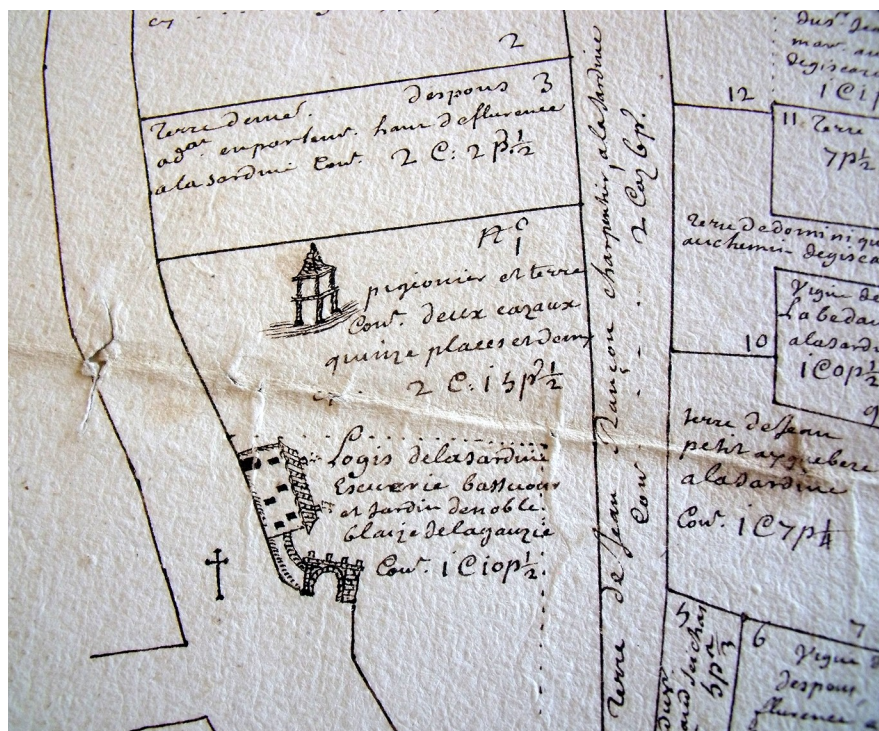 2
3
terre deme. despons
adat. enporteur. haur deflurence
alasardine Cow. 2 C: 2 p. 1/2
N° 1
pigionier et terre
Cow. deux cazaux
quinze places et demy
2 C: i5 p 1/2
Logis delasardine
Escuerie bassecour
et Jardin denoble
blaize delagauzie
Cow. i C i0 p 1/2
terre de Jean françon charpentier alasardine
Cow - - . . 2 Caz 6 p.
12
11 terre
7 p 1/2
i C i p
terre dedominique
auchemin degisca
vigne de
Labedau
alasardi
i C 0 p 1/2
10
9
terre de Jean
petit ayguebere
alasardine
Cow. i C 7 p 1/4
5
5 p 2/3
6
7
vigne d
despons
flurence a